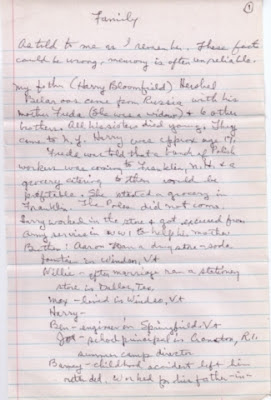 1
Family
As told to me as I remember. These facts
could be wrong, memory is often unreliable.
My father (Harry Bloomfield) Hershel
came from Russia with his
mother Freda (she was a widow) & 6 other
brothers. All his sisters died young. They
came to N.Y. Harry were approx age 17.
Freda was told that a band of Polish
workers was coming to Franklin, N.H. & a
grocery catering to them would be
profitable. She started a grocery in
Franklin. The Poles did not come.
Harry worked in the store & got excused from
army service in WW1 to help his mother
Brothers: Aaro- ran a drug store-soda
fountain in Windsor, Vt
Willie - after marriage ran a stationery
store in Dallas, Tex.
Max - lived in Windsor, Vt
Harry -
Ben - engineer in Springfield, Vt
Joe - school principal in Cranston, R.I.
summer camp director
Barney - childhood accident left him
retarded. Worked for his father-in-